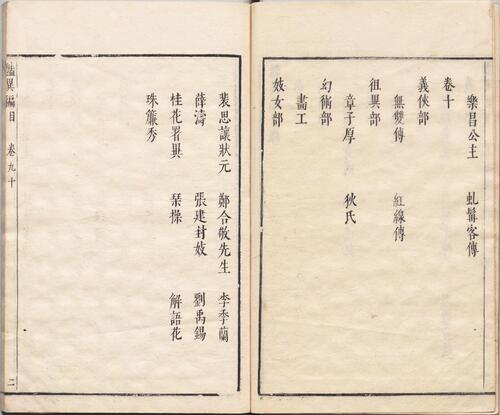 樂昌公主 虬髯客傳
卷十
義俠部
無雙傳 紅線傳
徂異部
章子厚 狄氏
幻術部
畵工
妓女部
裴思讓狀元 鄭合敬先生 李季蘭
薛濤 張建封妓 劉禹錫
桂花署異 琹操 解語花
珠簾秀
豔異編目 卷九十 二